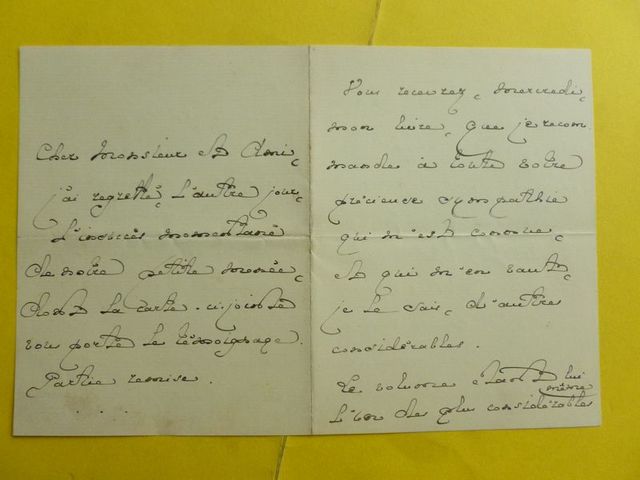 Cher Monsieur et Ami,
j'ai regretté, l'autre jour,
l'insuccès momentané
de notre petite menée,
dont la carte ci-jointe
vous porte le témoignage.
Partie remise.
. . .
Vous recevrez, mercredi,
mon livre, que je recom-
mande à toute votre
précieuse sympathie
qui m'est connue,
et qui m'en vaut,
je le sais, d'autres
considérables.
Le volume étant lui
même
l'un des plus considérables